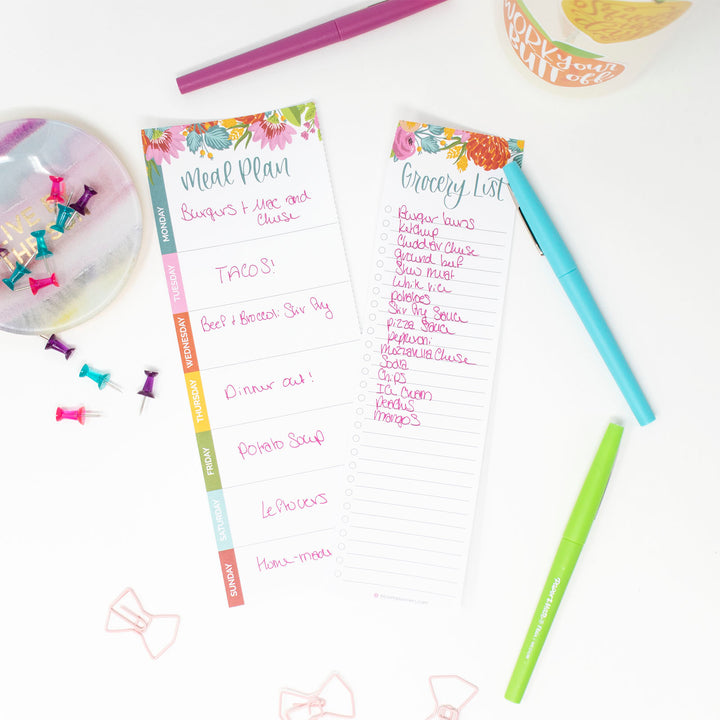 WORK your
BUTT off
Meal Plan
MONDAY
Burgers + Mac and
Cheese
TUESDAY
TACOS!
WEDNESDAY
Beef + Broccoli Stir Fry
THURSDAY
Dinner out!
FRIDAY
Potato Soup
SATURDAY
Leftovers
SUNDAY
Home-made
Grocery List
Burger buns
Ketchup
Cheddar Cheese
ground beef
Stew meat
White rice
potatoes
Stir Fry Sauce
pizza Sauce
Pepperoni
Mozzarella Cheese
Soda
Chips
Ice Cream
Peachs
Mangos